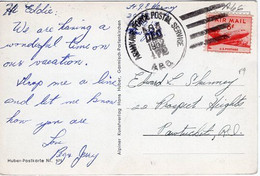 Hi Eddie,
We are having a
wonderful time on
our vacation.
Drop me a line
and let me know
how you are.
Love
Huber-Postkarte Nr.
Alpiner Kunstverlag Hans Huber, Garmisch-Partenkirchen
ARMY-AIR FORCE POSTAL SERVICE
A.P.O.
AIR MAIL
6¢
Edward L.
Prospect Heights
Pawtucket, R.I.